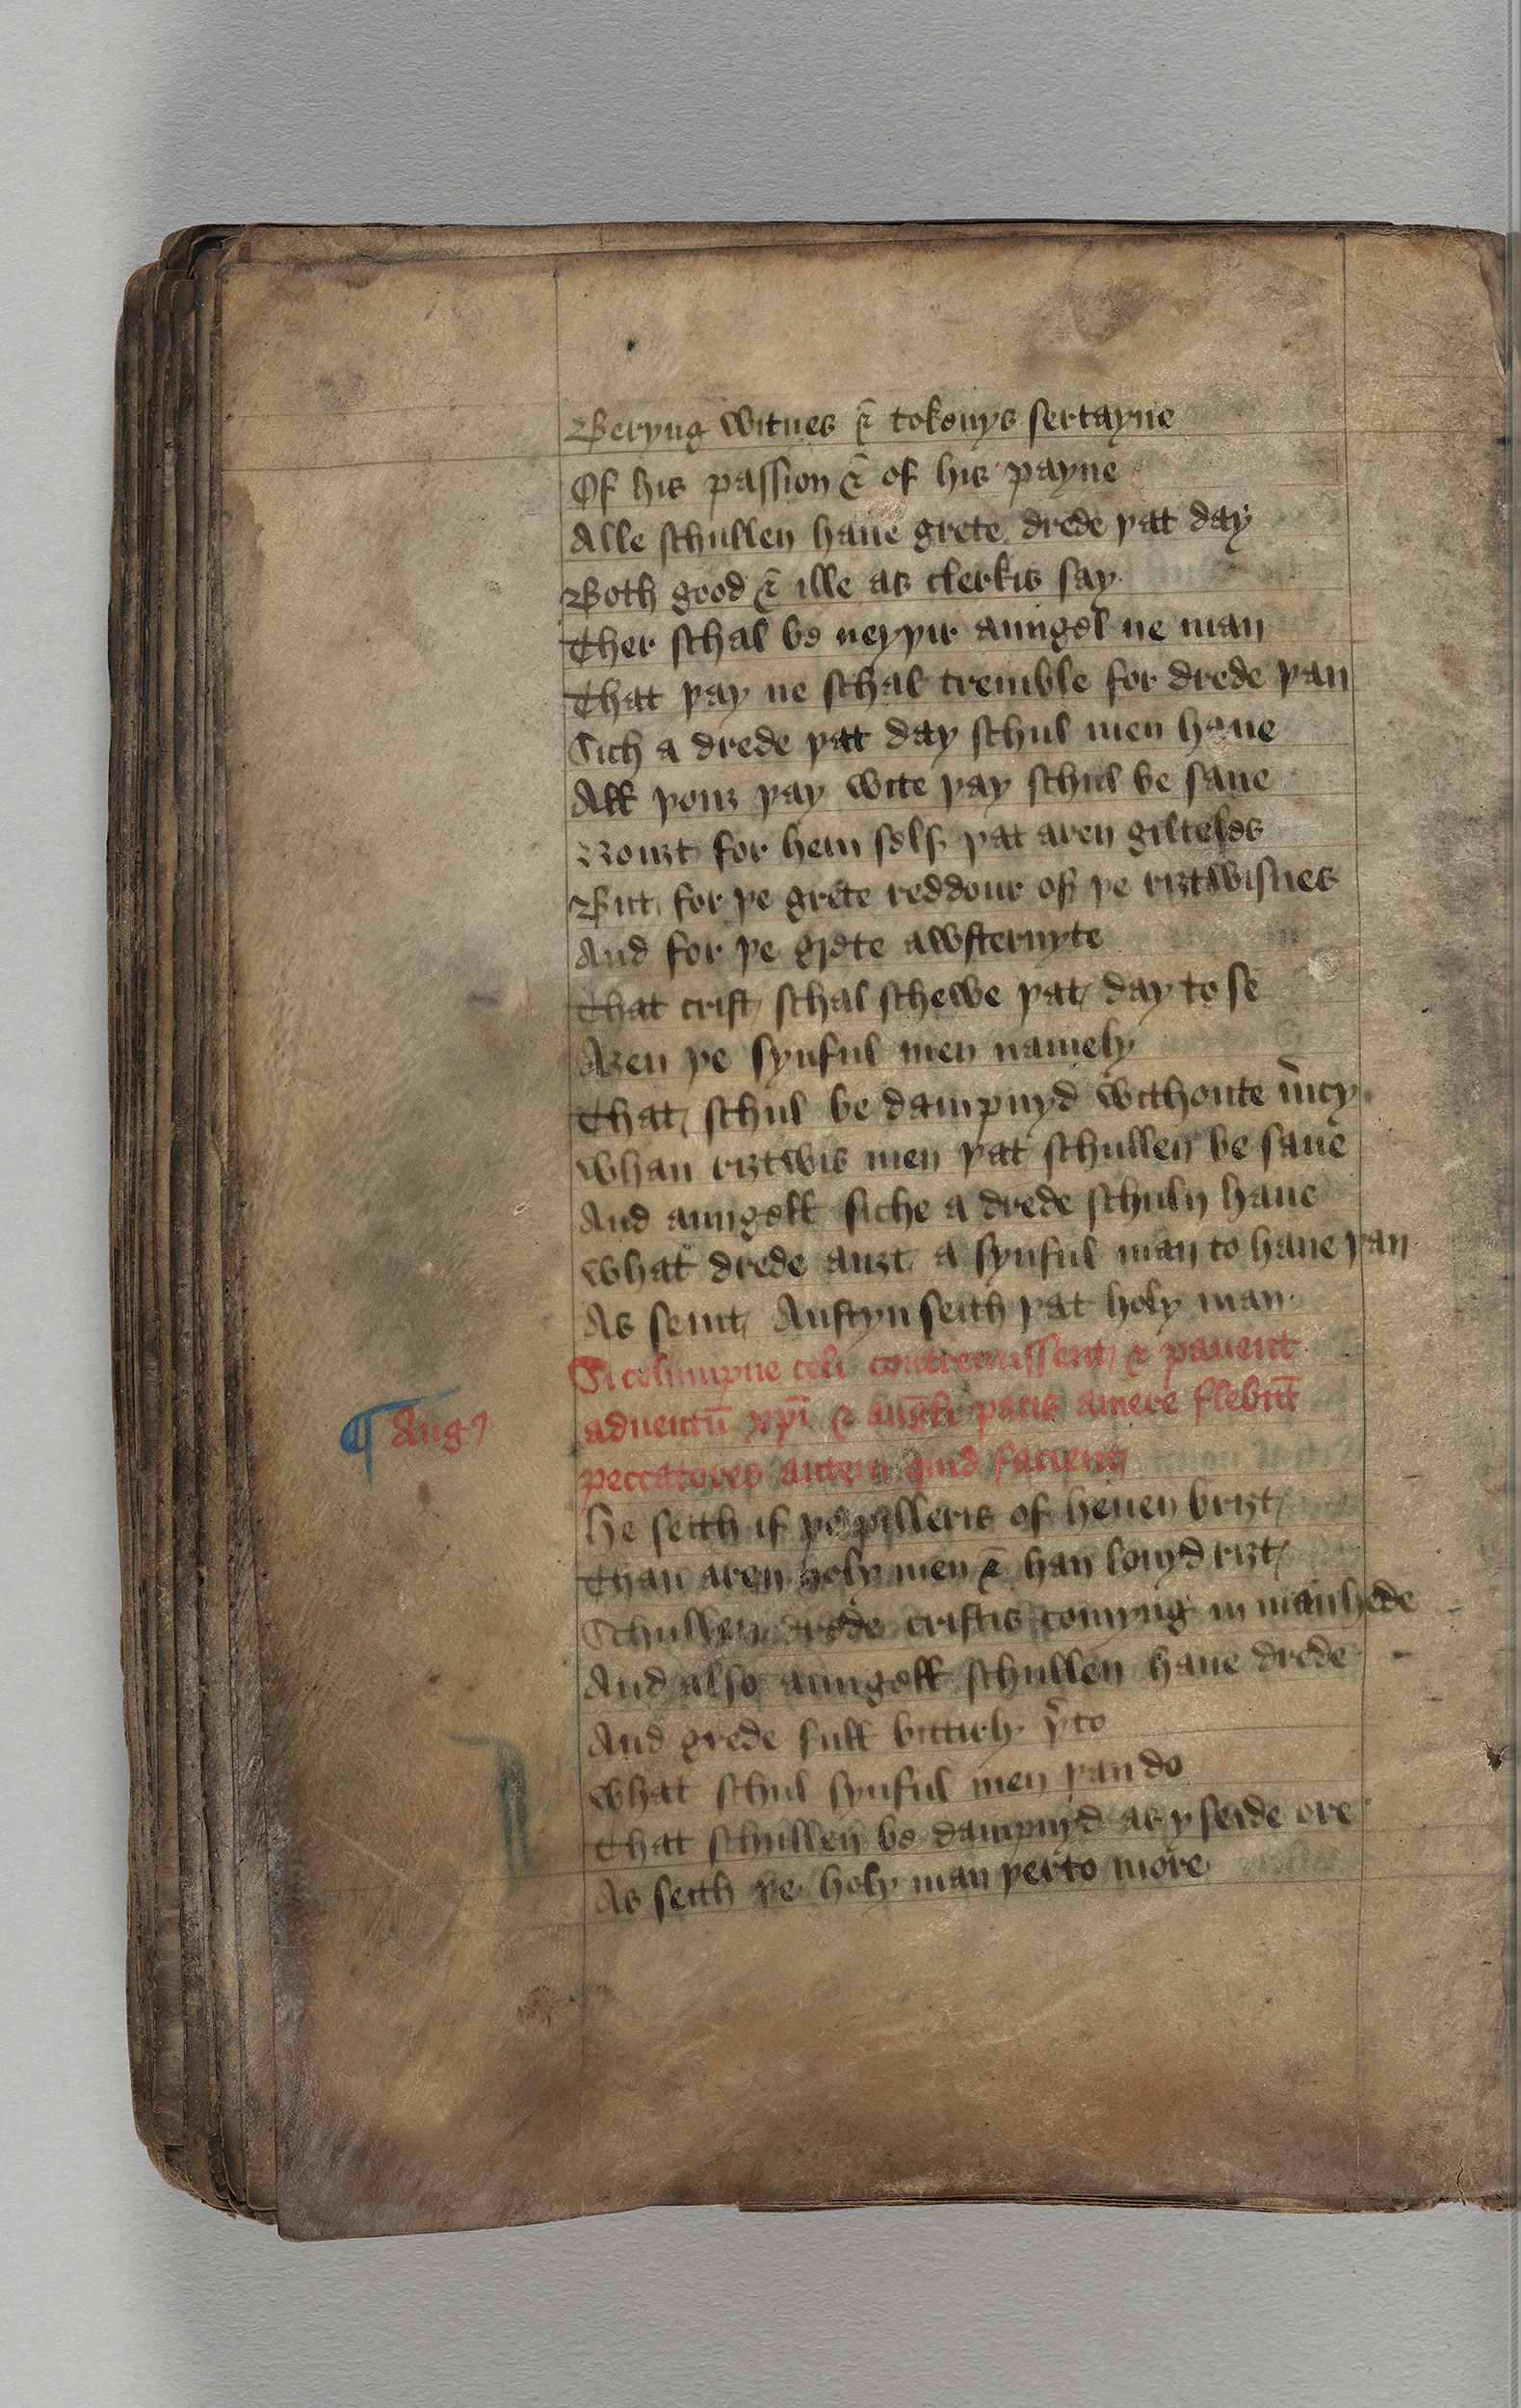 Beryng witnes & tokenys sertayne
Of his passion & of his payne
Alle schullen haue grete drede þat day
Both good & ille as clerkis say
Ther schal be neyþir aungel ne man
That þay ne schal tremble for drede þan
Sich a drede þat day schul men haue
All þouȝ þay wite þay schul be saue
Nouȝt for hem self þat aren giltelees
But for þe grete reddour of þe riȝtwisnes
And for þe grete awsternyte
That crist schal schewe þat day to se
Aȝen þe synful men namely
That schul be dampnyd withoute mcy
Whan riȝtwis men þat schullen be saue
And aungell siche a drede schuln haue
What drede auȝt a synful man to haue þan
As seint Austyn seith þat holy man
Si columpne celi contremissent & pauent
¶ Aug
aduentū xp̄i & angli pacis amere flebūt
peccatores autem quid facient
He seith if þe pilleris of heuen briȝt
Than aren holy men & han louyd riȝt
Schullen drede cristis comyng in manhede
And also aungell schullen haue drede
And grede full bittirly þto
What schul synful men þan do
That schullen be dampnyd as y seide ore
As seith þe holy man þerto more